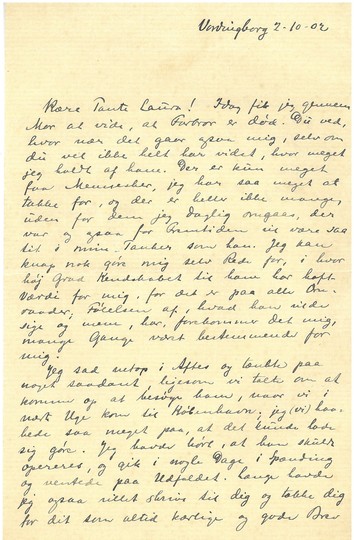 Vordingborg 2-10-02
Kære Tante Laura! Idag fik jeg gennem
Mor at vide, at Farbror er død. Du ved,
hvor nær det gaar ogsaa mig, selv om
du vel ikke helt har vidst, hvor meget
jeg holdt af ham. Der er kun meget
faa Mennesker, jeg har saa meget at
takke for, og der er heller ikke mange,
uden for dem jeg daglig omgaas, der
var og ogsaa for Fremtiden vil være saa
tit i mine Tanker som han. Jeg kan
knap nok gøre mig selv Rede for, i hvor
høj Grad Kendskabet til ham har haft
Værdi for mig, for det er paa alle Om-
raader; Følelsen af, hvad han vilde
sige og mene, har, forekommer det mig,
mange Gange været bestemmende for
mig.
Jeg sad netop i Aftes og tænkte paa
noget saadant, ligesom vi talte om at
komme op at besøge ham, naar vi i
næste Uge kom til København. jeg (vi) haa-
bede saa meget paa, at det kunde lade
sig gøre. Jeg havde hørt, at han skulde
opereres, og gik i nogle Dage i Spænding
og ventede paa Udfaldet. Længe havde
jeg ogsaa villet skrive til dig og takke dig
for dit som altid kærlige og gode Brev